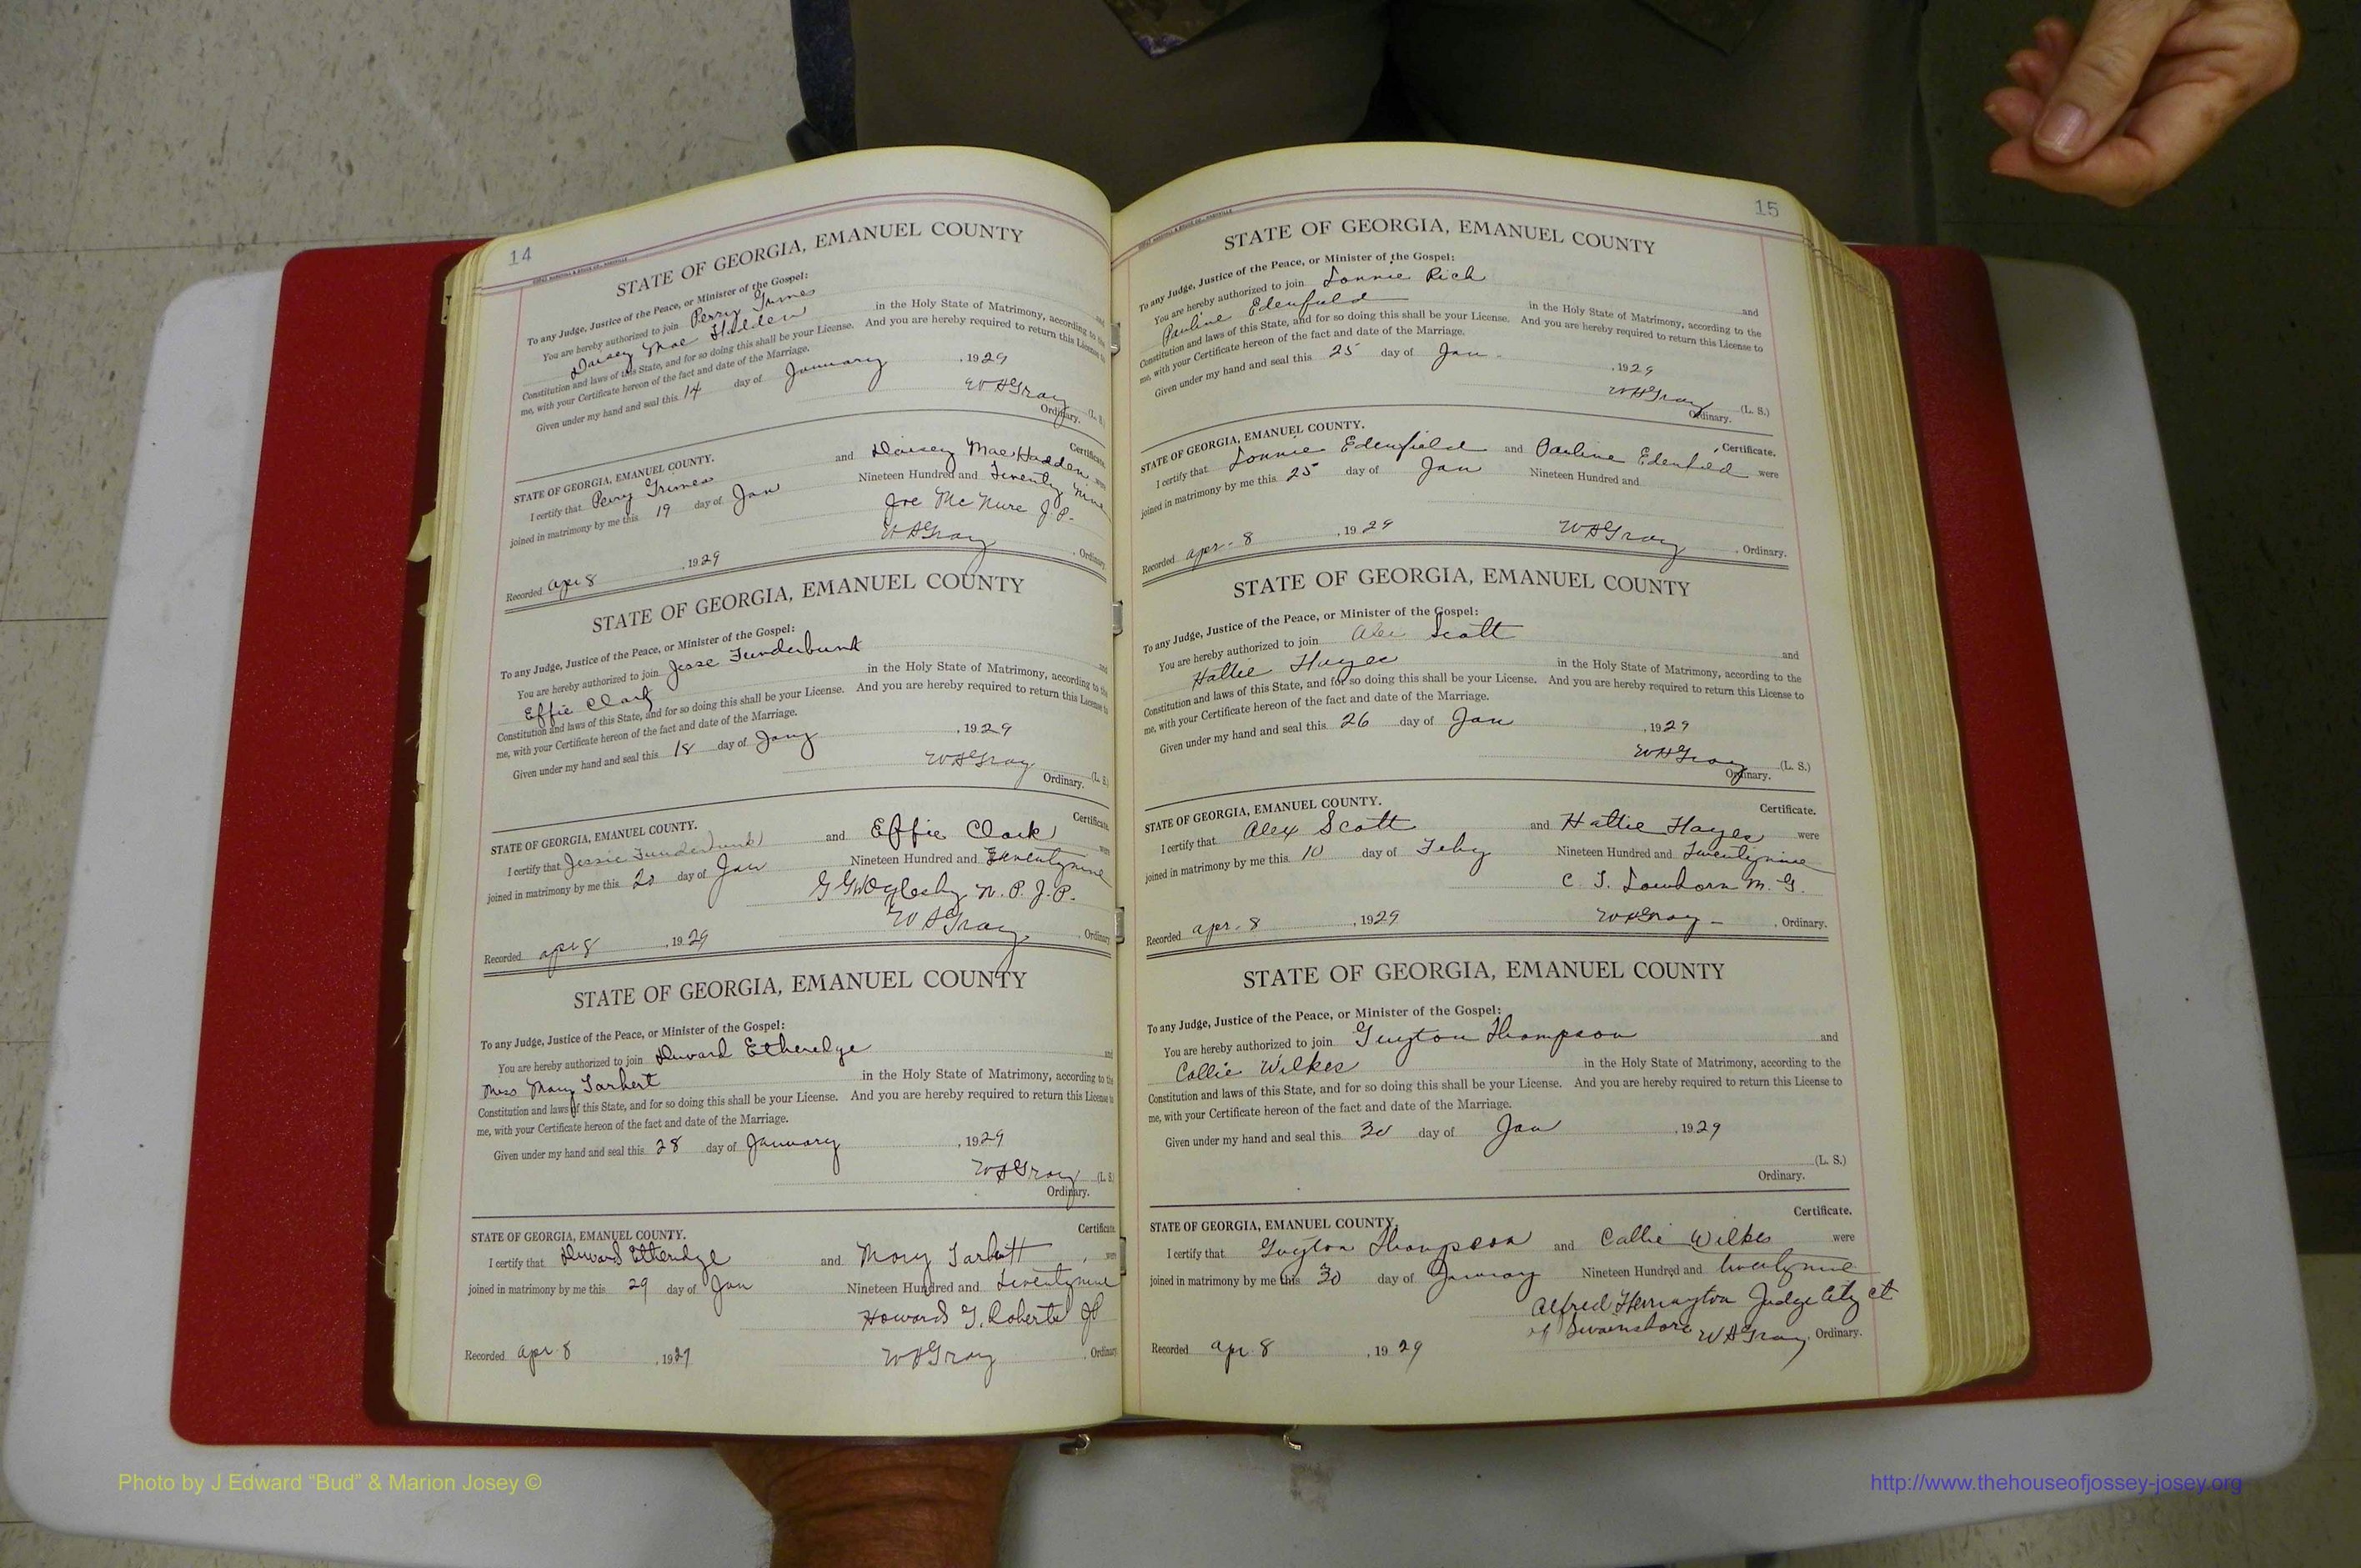 14
STATE OF GEORGIA, EMANUEL COUNTY
To any Judge, Justice of the Peace, or Minister of the Gospel:
You are hereby authorized to join Perry Grimes and
Daisey Mae Hadden in the Holy State of Matrimony, according to the
Constitution and laws of this State, and for so doing this shall be your License. And you are hereby required to return this License to
me, with your Certificate hereon of the fact and date of the Marriage.
Given under my hand and seal this 14 day of January, 1929
W H Gray (L. S.)
Ordinary.
Certificate.
STATE OF GEORGIA, EMANUEL COUNTY.
I certify that Perry Grimes and Daisey Mae Hadden were
joined in matrimony by me this 19 day of Jan Nineteen Hundred and Twenty Nine
Joe McNure J. P.
Recorded Apr 8, 1929 W H Gray, Ordinary
STATE OF GEORGIA, EMANUEL COUNTY
To any Judge, Justice of the Peace, or Minister of the Gospel:
You are hereby authorized to join Jesse Funderburk and
Effie Clark in the Holy State of Matrimony, according to the
Constitution and laws of this State, and for so doing this shall be your License. And you are hereby required to return this License to
me, with your Certificate hereon of the fact and date of the Marriage.
Given under my hand and seal this 18 day of Jany, 1929
W H Gray (L. S.)
Ordinary.
Certificate.
STATE OF GEORGIA, EMANUEL COUNTY.
I certify that Jessie Funderbunk and Effie Clark were
joined in matrimony by me this 20 day of Jan Nineteen Hundred and Twentynine
Oglesby N. P. J. P.
Recorded apr 8, 1929 W H Gray, Ordinary
STATE OF GEORGIA, EMANUEL COUNTY
To any Judge, Justice of the Peace, or Minister of the Gospel:
You are hereby authorized to join Duward Etheredge and
Miss Mary Tarbert in the Holy State of Matrimony, according to the
Constitution and laws of this State, and for so doing this shall be your License. And you are hereby required to return this License to
me, with your Certificate hereon of the fact and date of the Marriage.
Given under my hand and seal this 28 day of January, 1929
W H Gray (L. S.)
Ordinary.
Certificate.
STATE OF GEORGIA, EMANUEL COUNTY.
I certify that Duward Etheridge and Mary Tarbutt were
joined in matrimony by me this 29 day of Jan Nineteen Hundred and twentynine
Howard G. Roberts JP
Recorded apr 8, 1929 W H Gray, Ordinary
15
STATE OF GEORGIA, EMANUEL COUNTY
To any Judge, Justice of the Peace, or Minister of the Gospel:
You are hereby authorized to join Lonnie Rich and
Pauline Edenfield in the Holy State of Matrimony, according to the
Constitution and laws of this State, and for so doing this shall be your License. And you are hereby required to return this License to
me, with your Certificate hereon of the fact and date of the Marriage.
Given under my hand and seal this 25 day of Jan, 1929
W H Gray (L. S.)
Ordinary.
Certificate.
STATE OF GEORGIA, EMANUEL COUNTY.
I certify that Lonnie Edenfield and Pauline Edenfield were
joined in matrimony by me this 25 day of Jan Nineteen Hundred and
Recorded apr. 8, 1929 W H Gray, Ordinary.
STATE OF GEORGIA, EMANUEL COUNTY
To any Judge, Justice of the Peace, or Minister of the Gospel:
You are hereby authorized to join Alex Scott and
Hattie Hayes in the Holy State of Matrimony, according to the
Constitution and laws of this State, and for so doing this shall be your License. And you are hereby required to return this License to
me, with your Certificate hereon of the fact and date of the Marriage.
Given under my hand and seal this 26 day of Jan, 1929
W H Gray (L. S.)
Ordinary.
Certificate.
STATE OF GEORGIA, EMANUEL COUNTY.
I certify that Alex Scott and Hattie Hayes were
joined in matrimony by me this 10 day of Feby Nineteen Hundred and Twentynine
C. T. Lawhorn M. G.
Recorded apr. 8, 1929 W H Gray, Ordinary.
STATE OF GEORGIA, EMANUEL COUNTY
To any Judge, Justice of the Peace, or Minister of the Gospel:
You are hereby authorized to join Guyton Thompson and
Callie Wilkes in the Holy State of Matrimony, according to the
Constitution and laws of this State, and for so doing this shall be your License. And you are hereby required to return this License to
me, with your Certificate hereon of the fact and date of the Marriage.
Given under my hand and seal this 30 day of Jan, 1929
(L. S.)
Ordinary.
Certificate.
STATE OF GEORGIA, EMANUEL COUNTY.
I certify that Guyton Thompson and Callie Wilkes were
joined in matrimony by me this 30 day of January Nineteen Hundred and twentynine
Alfred Herrington Judge City ct
of Swainsboro
Recorded apr. 8, 1929 W H Gray, Ordinary.
Photo by J Edward “Bud” & Marion Josey ©
http://www.thehouseofjossey-josey.org